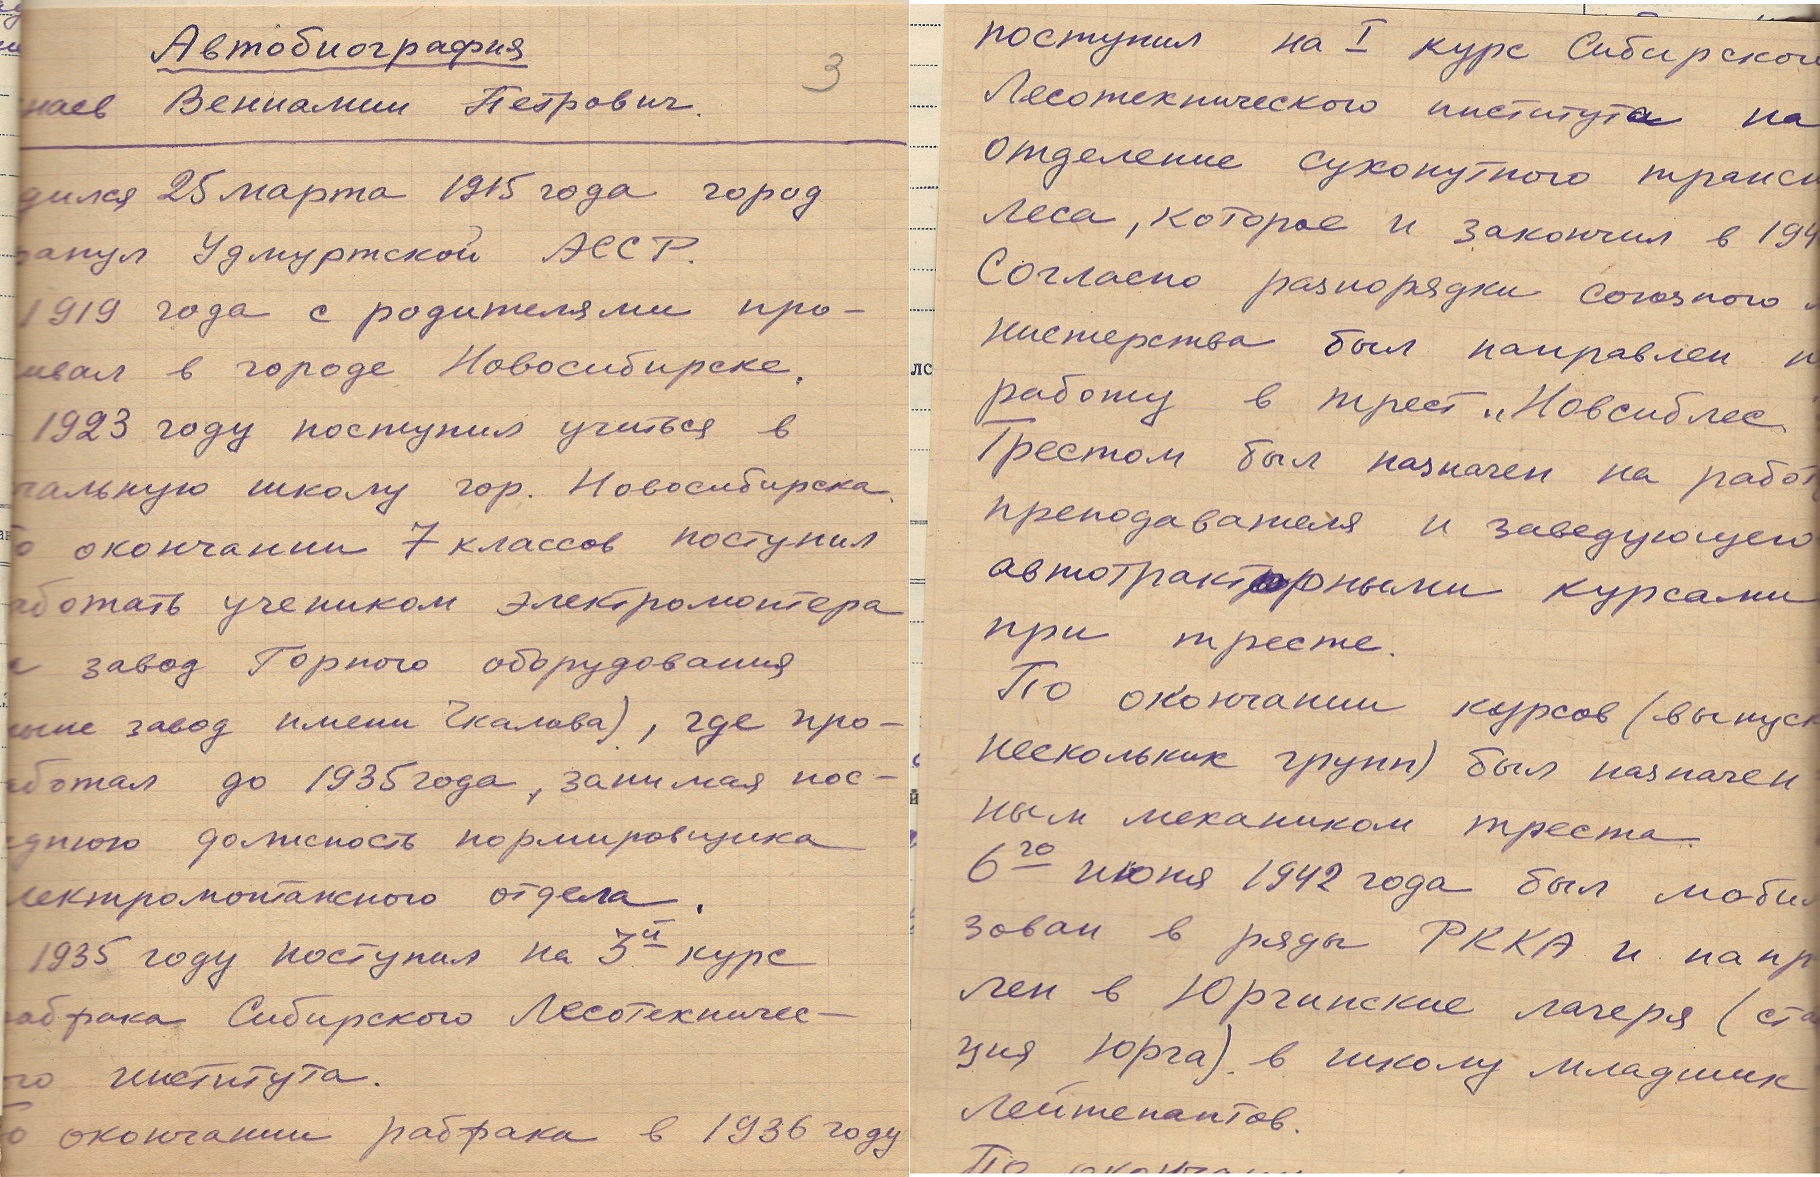 Автобиография
3
наев Вениамин Петрович.
дился 25 марта 1915 года город
рапул Удмуртской АССР.
1919 года с родителями про-
ивал в городе Новосибирске.
1923 году поступил учиться в
чальную школу гор. Новосибирска.
о окончании 7 классов поступил
аботать учеником электромонтера
а завод Горного оборудования
ныне завод имени Чкалова), где про-
аботал до 1935 года, занимая пос-
еднюю должность нормировщика
лектромонтажного отдела.
1935 году поступил на 3й курс
абфака Сибирского Лесотехничес-
го института.
о окончании рабфака в 1936 году
поступил на I курс Сибирского
Лесотехнического института на
отделение сухопутного трансп
леса, которое и закончил в 194
Согласно разпорядки союзного м
нистерства был направлен н
работу в трест „Новсиблес
Трестом был назначен на работ
преподавателя и заведующего
автотракторными курсами
при тресте.
По окончании курсов (выпуск
нескольких групп) был назначен
ным механиком треста.
6го июня 1942 года был моби
зован в ряды РККА и напр
лен в Юргинские лагеря (ста
ция Юрга) в школу младших
Лейтенантов.
По окончании